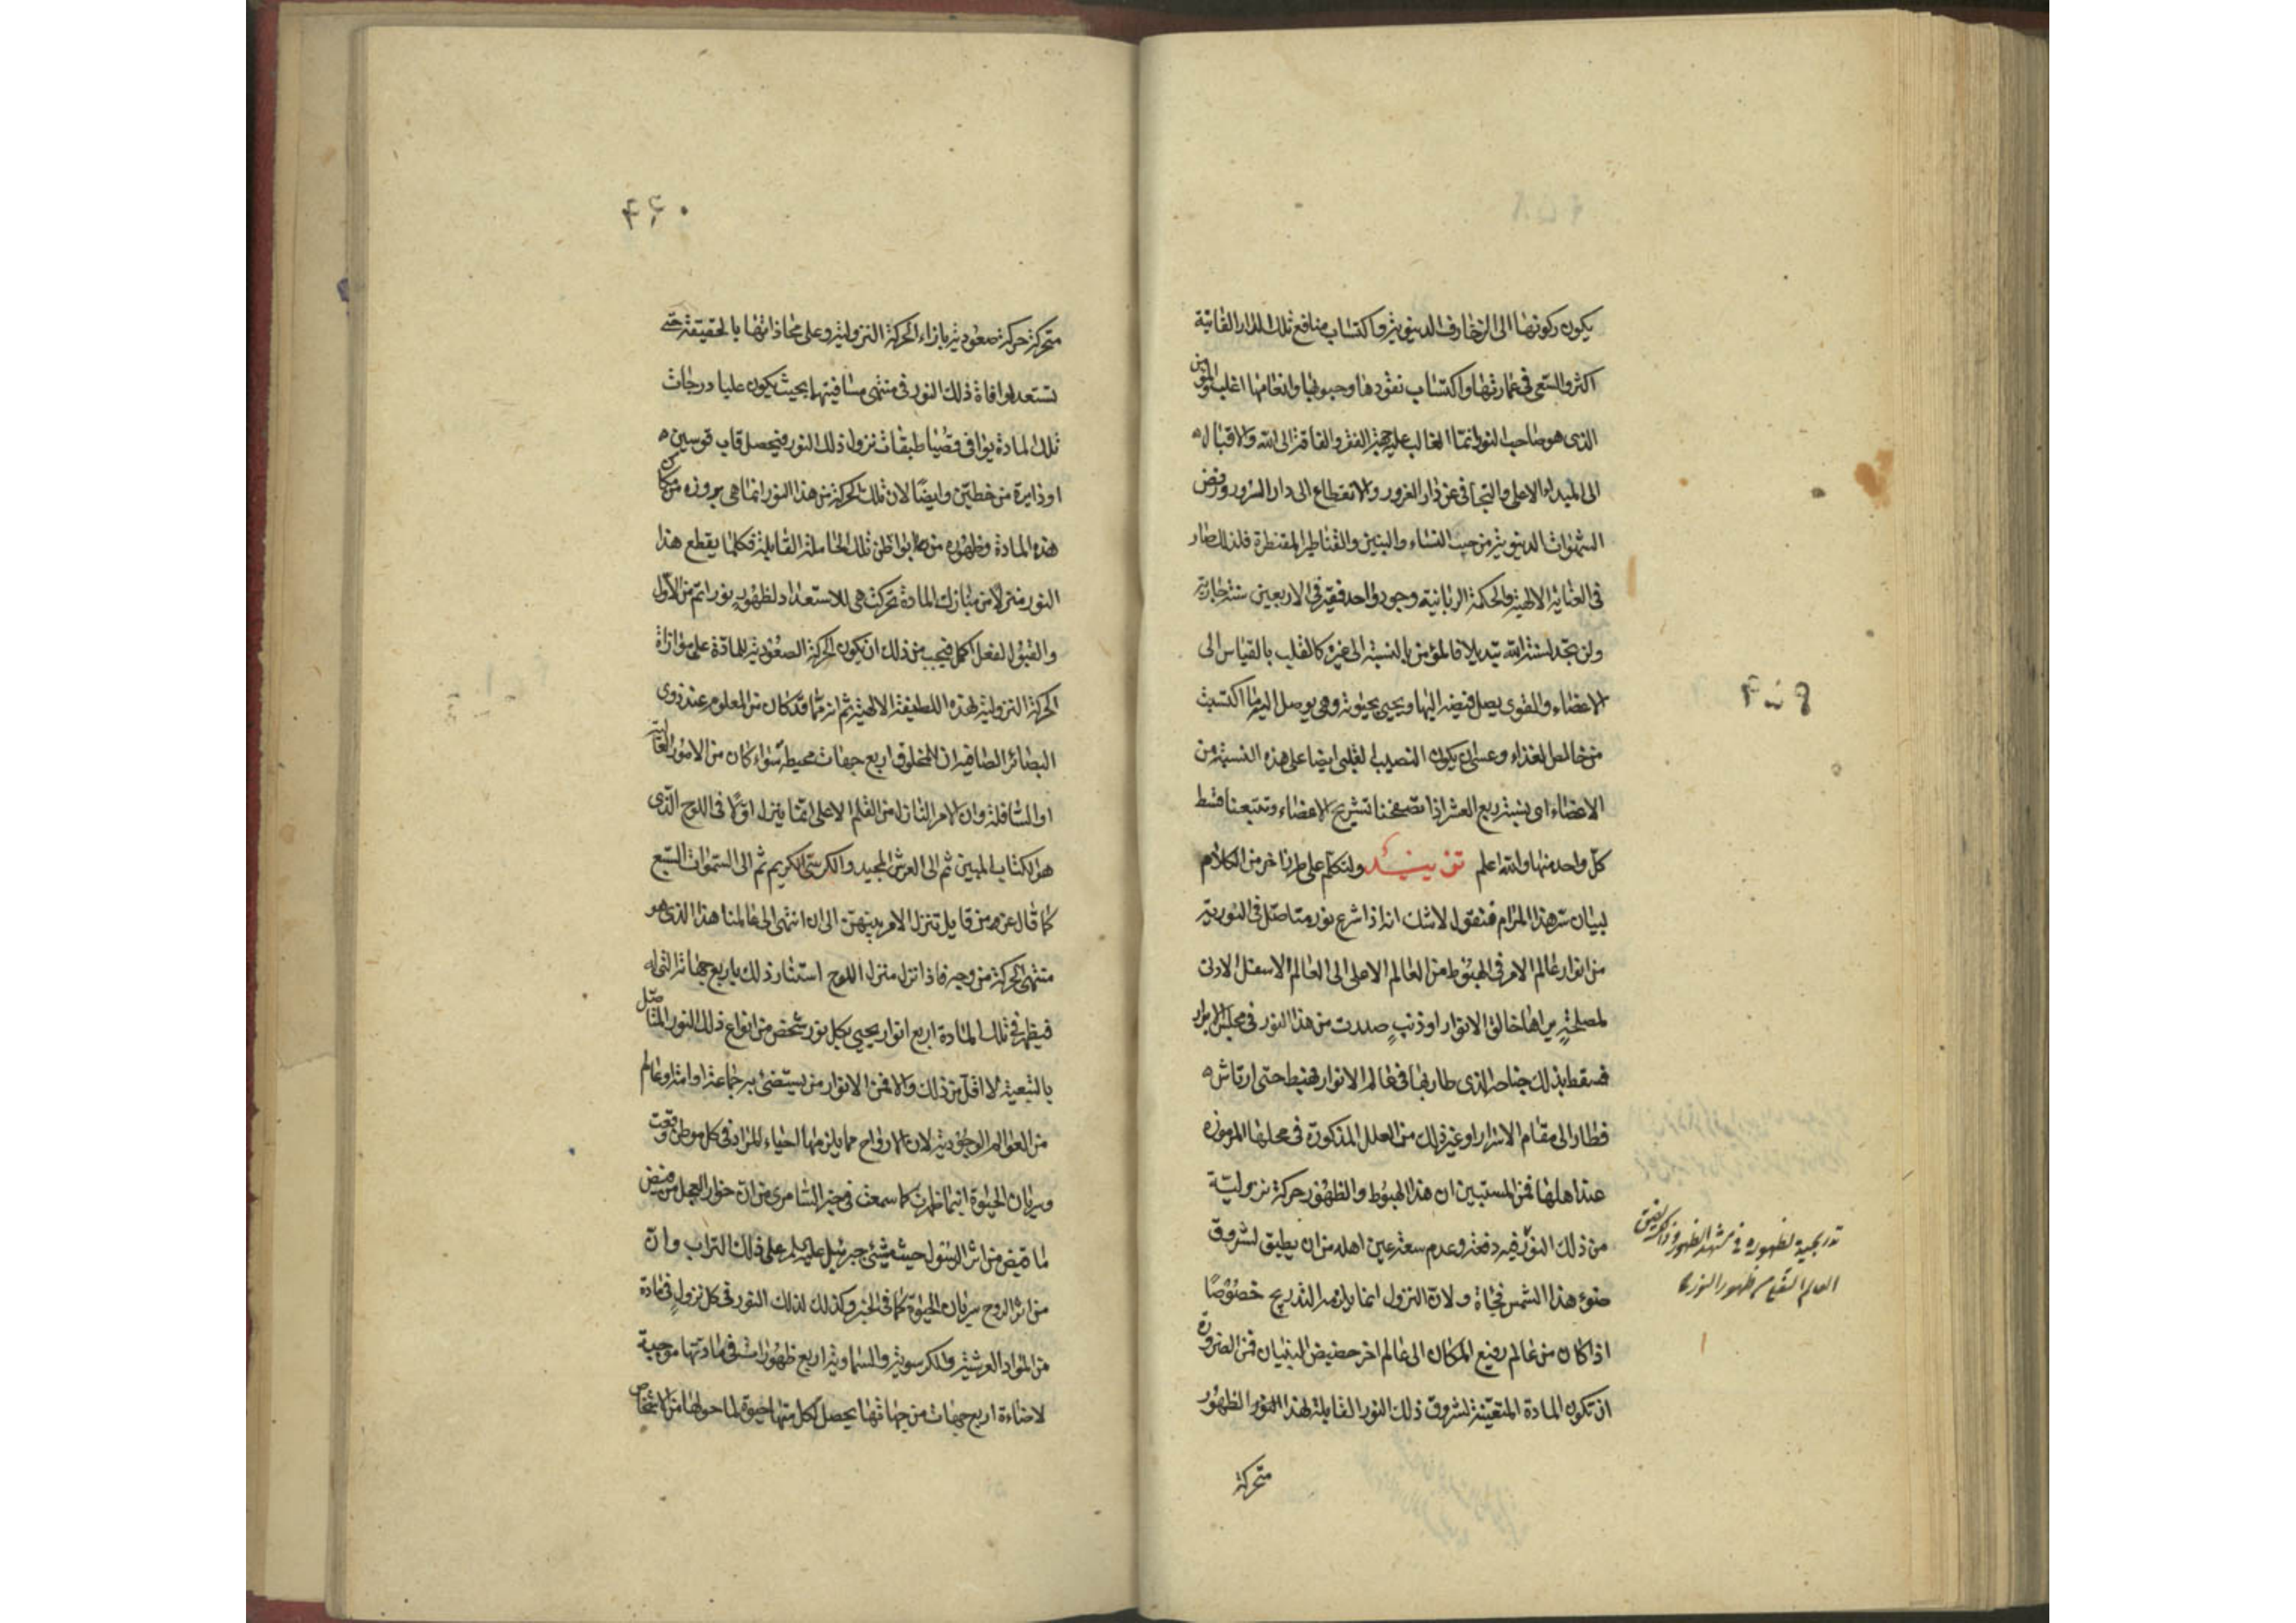 يكون ركونها الى الزخارف الدنيوية واكتساب منافع تلك الدار الفانية
اكثر والسعى فى عمارتها واكتساب نقودها وحبوبها وانعامها اغلب والمؤمن
الذى هو صاحب النور انما الغالب عليه جهة الفقر والفاقة الى الله والاقبال
الى المبداء الاعلى والتجافى عن دار الغرور والانقطاع الى دار السرور ورفض
الشهوات الدنيوية من حب النساء والبنين والقناطير المقنطرة فلذلك صار
فى العناية الالهية والحكمة الربانية وجود واحد فقير فى الاربعين سنة جارية
ولن تجد لسنة الله تبديلا فالمؤمن بالنسبة الى غيره كالقلب بالقياس الى
الاعضاء والقوى يصل فيضه اليها ويحيى بحيوته وهى يوصل اليه ما اكتسبت
من خالص الغذاء وعسى ان يكون النصيب القلبى ايضا على هذه النسبة من
الاعضاء اى نسبة ربع العشر اذا تصفحنا تشريح الاعضاء وتتبعنا قسط
كل واحد منها والله اعلم ولنتكلم على طرز اخر من الكلام
لبيان سر هذا المرام فنقول لا شك انه اذا شرع نور متاصل فى النورية
من انوار عالم الامر فى الهبوط من العالم الاعلى الى العالم الاسفل الادنى
لمصلحة يراها خالق الانوار او ذنب صدرت من هذا النور فى مجلس الابرار
فسقط بذلك جناحه الذى طار بها فى عالم الانوار فهبط حتى ارتاش
فطار الى مقام الاسرار او غير ذلك من العلل المذكورة فى محلها المرموزة
عند اهلها فمن المستبين ان هذا الهبوط والظهور حركة نزولية
من ذلك النور فيه دفعة وعدم سعة عين اهله من ان يطيق لشروق
ضوء هذا الشمس فجاة ولان النزول انما يلزمه التدريج خصوصا
اذا كان من عالم رفيع المكان الى عالم اخر حضيض البنيان فمن الضرورة
ان تكون المادة المتعينة لشروق ذلك النور القابلة لهذا النور الظهور
متحركة
۴۵۹
تدريجية لظهوره فى مشهد الظهور وذلك لضيق
العالم السفلى من ظهور النور
۴۶۰
متحركة حركة صعودية بازاء الحركة النزولية وعلى محاذاتها بالحقيقة حتى
تستعد لموافاة ذلك النور فى منتهى مسافتيها بحيث يكون عليا درجات
تلك المادة يوافى قصيا طبقات نزول ذلك النور فيحصل قاب قوسين
او دايرة من خطين وايضا لان تلك الحركة من هذا النور انما هى بروزه من مكامن
هذه المادة وظهوره من بواطن تلك الحاملة القابلية فكلما يقطع هذا
النور منزلا من منازل المادة تحركت هى للاستعداد لظهور نور اتم من الاول
والقبول لفعل اكمل فيجب من ذلك ان يكون الحركة الصعودية للمادة على موازاة
الحركة النزولية لهذه اللطيفة الالهية ثم انه مما قد كان من المعلوم عند ذوى
البصائر الصافية ان للمخلوق اربع جهات محيطة سواء كان من الامور العالية
او السافلة وان الامر النازل من القلم الاعلى انما ينزل اولا فى اللوح الذى
هو الكتاب المبين ثم الى العرش المجيد والكرسى الكريم ثم الى السموات السبع
كما قال عز من قايل تنزل الامر بينهن الى ان انتهى الى عالمنا هذا الذى هو
منتهى الحركة من وجه فاذا نزل منزل اللوح استنار ذلك باربع جهاته التى له
فيظهر فى تلك المادة اربع انوار يحيى بكل نور شخص من انواع ذلك النور المتاصل
بالتبعية لا اقل من ذلك والا فمن الانوار من يستضئ به جماعة او امة او عالم
من العوالم الوجودية لان الارواح مما يلزمها احياء المراد فى كل موطن وقعت
وسريان الحيوة اينما ظهرت كما سمعت فى خبر السامرى من ان خوار العجل من قبض
ما قبض من اثر الرسول حيث مشى جبرئيل عليه السلم على ذلك التراب وان
من اثر الروح سريان الحيوة كما فى الخبر وكذلك لذلك النور فى كل نزول فى مادة
من المواد العرشية والكرسوية والسماوية اربع ظهورات فى مادتها موجبة
لاضاءة اربع جهات من جهاتها يحصل لكل منها حيوة لما حولها من الاشخاص